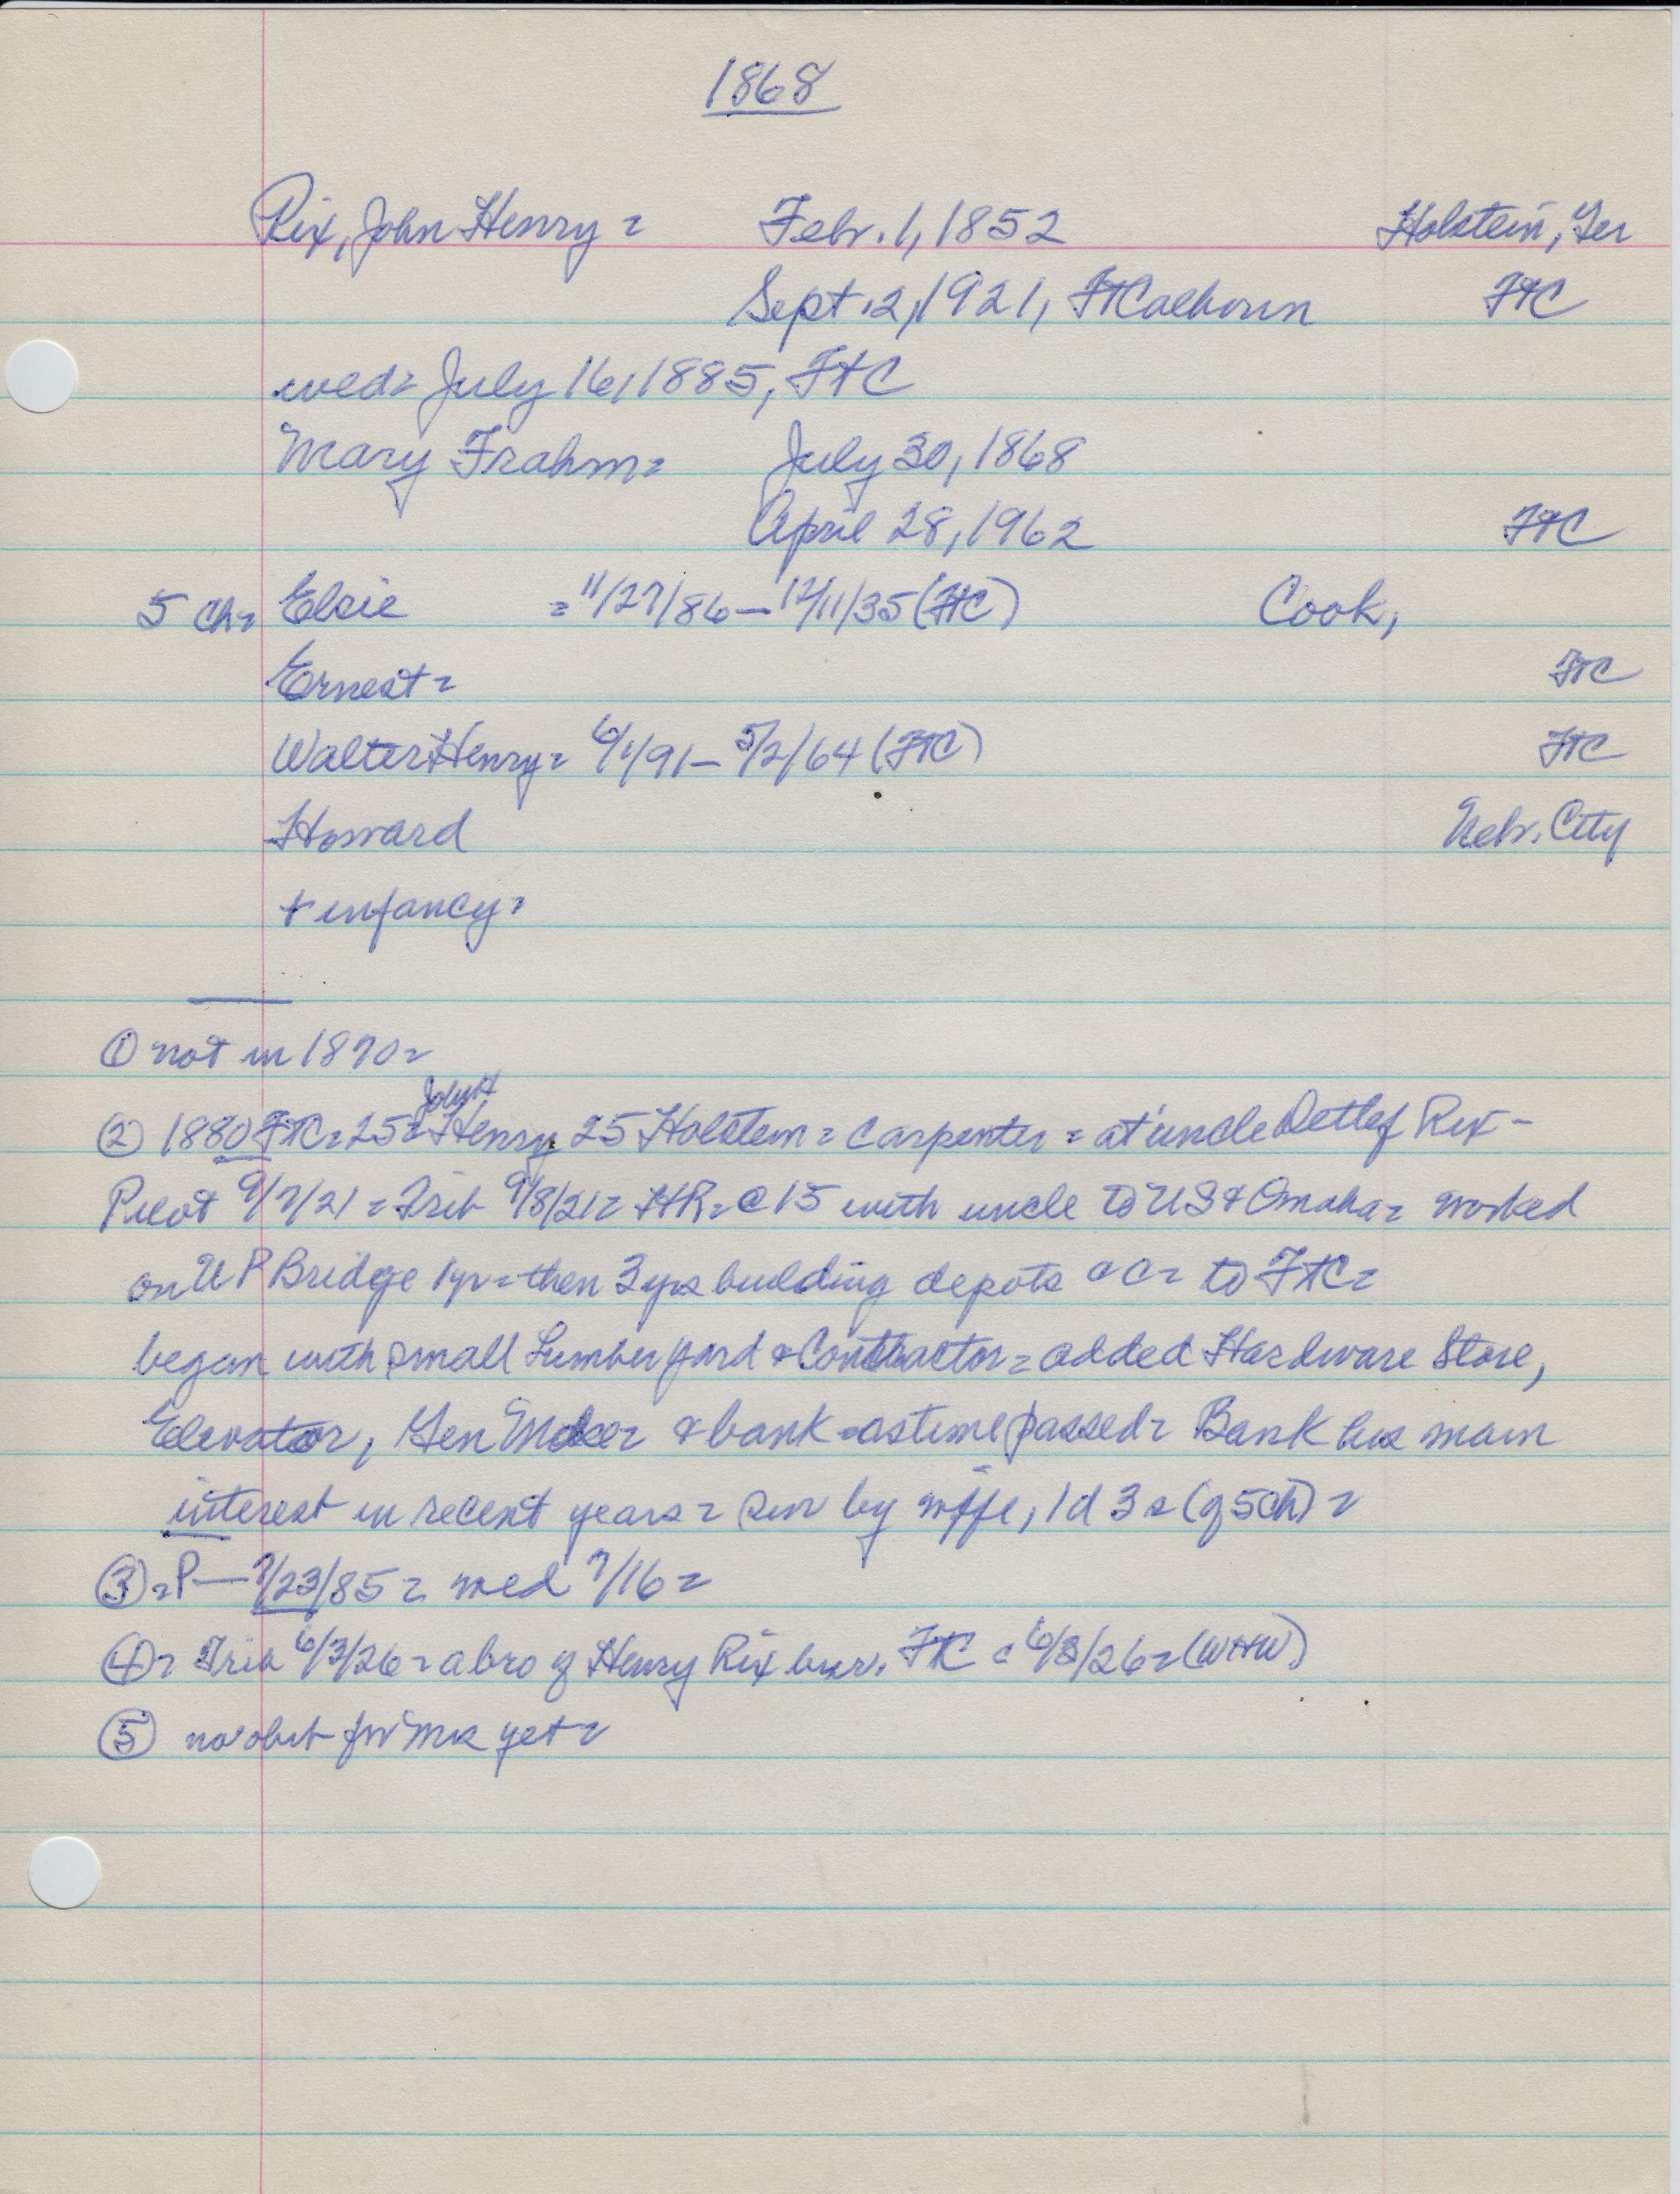 1868
Rix, John Henry = Febr. 1, 1852 Holstein, Ger
Sept. 2, 1921, Ft Calhoun FtC
wed = July 16, 1885, FtC
Mary Frahm = July 30, 1868
April 28, 1962 FtC
5 ch = Elsie = 11/27/86 – 12/11/35 (FtC) Cook,
Ernest = FtC
Walter Henry = 6/1/91 – 5/2/64 (FtC) FtC
Howard Nebr. City
+ infancy =
① not in 1870 =
John H
② 1880 FtC = 25 = Henry 25 Holstein = carpenter = at uncle Detlef Rix –
Pilot 9/7/21 = Trib 9/8/21 = HR = @ 15 with uncle to US & Omaha = worked
on UP Bridge 1 yr = then 3 yrs building depots = to FtC =
began with small Lumber yard & Contractor = added Hardware Store,
Elevator, Gen & bank = as time passed = Bank his main
interest in recent years = sur by wife, 1 d 3 s (of 5 ch) =
③ = P — 7/23/85 = wed 7/16 =
④ = Trib 6/3/26 = a bro of Henry Rix FtC = 6/3/26 = (WHW)
⑤ no obit for Mrs yet =